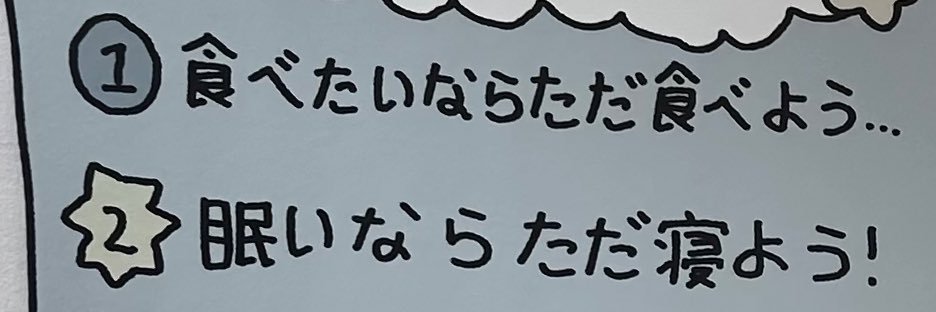 ① 食べたいならただ食べよう...
2 眠いならただ寝よう!